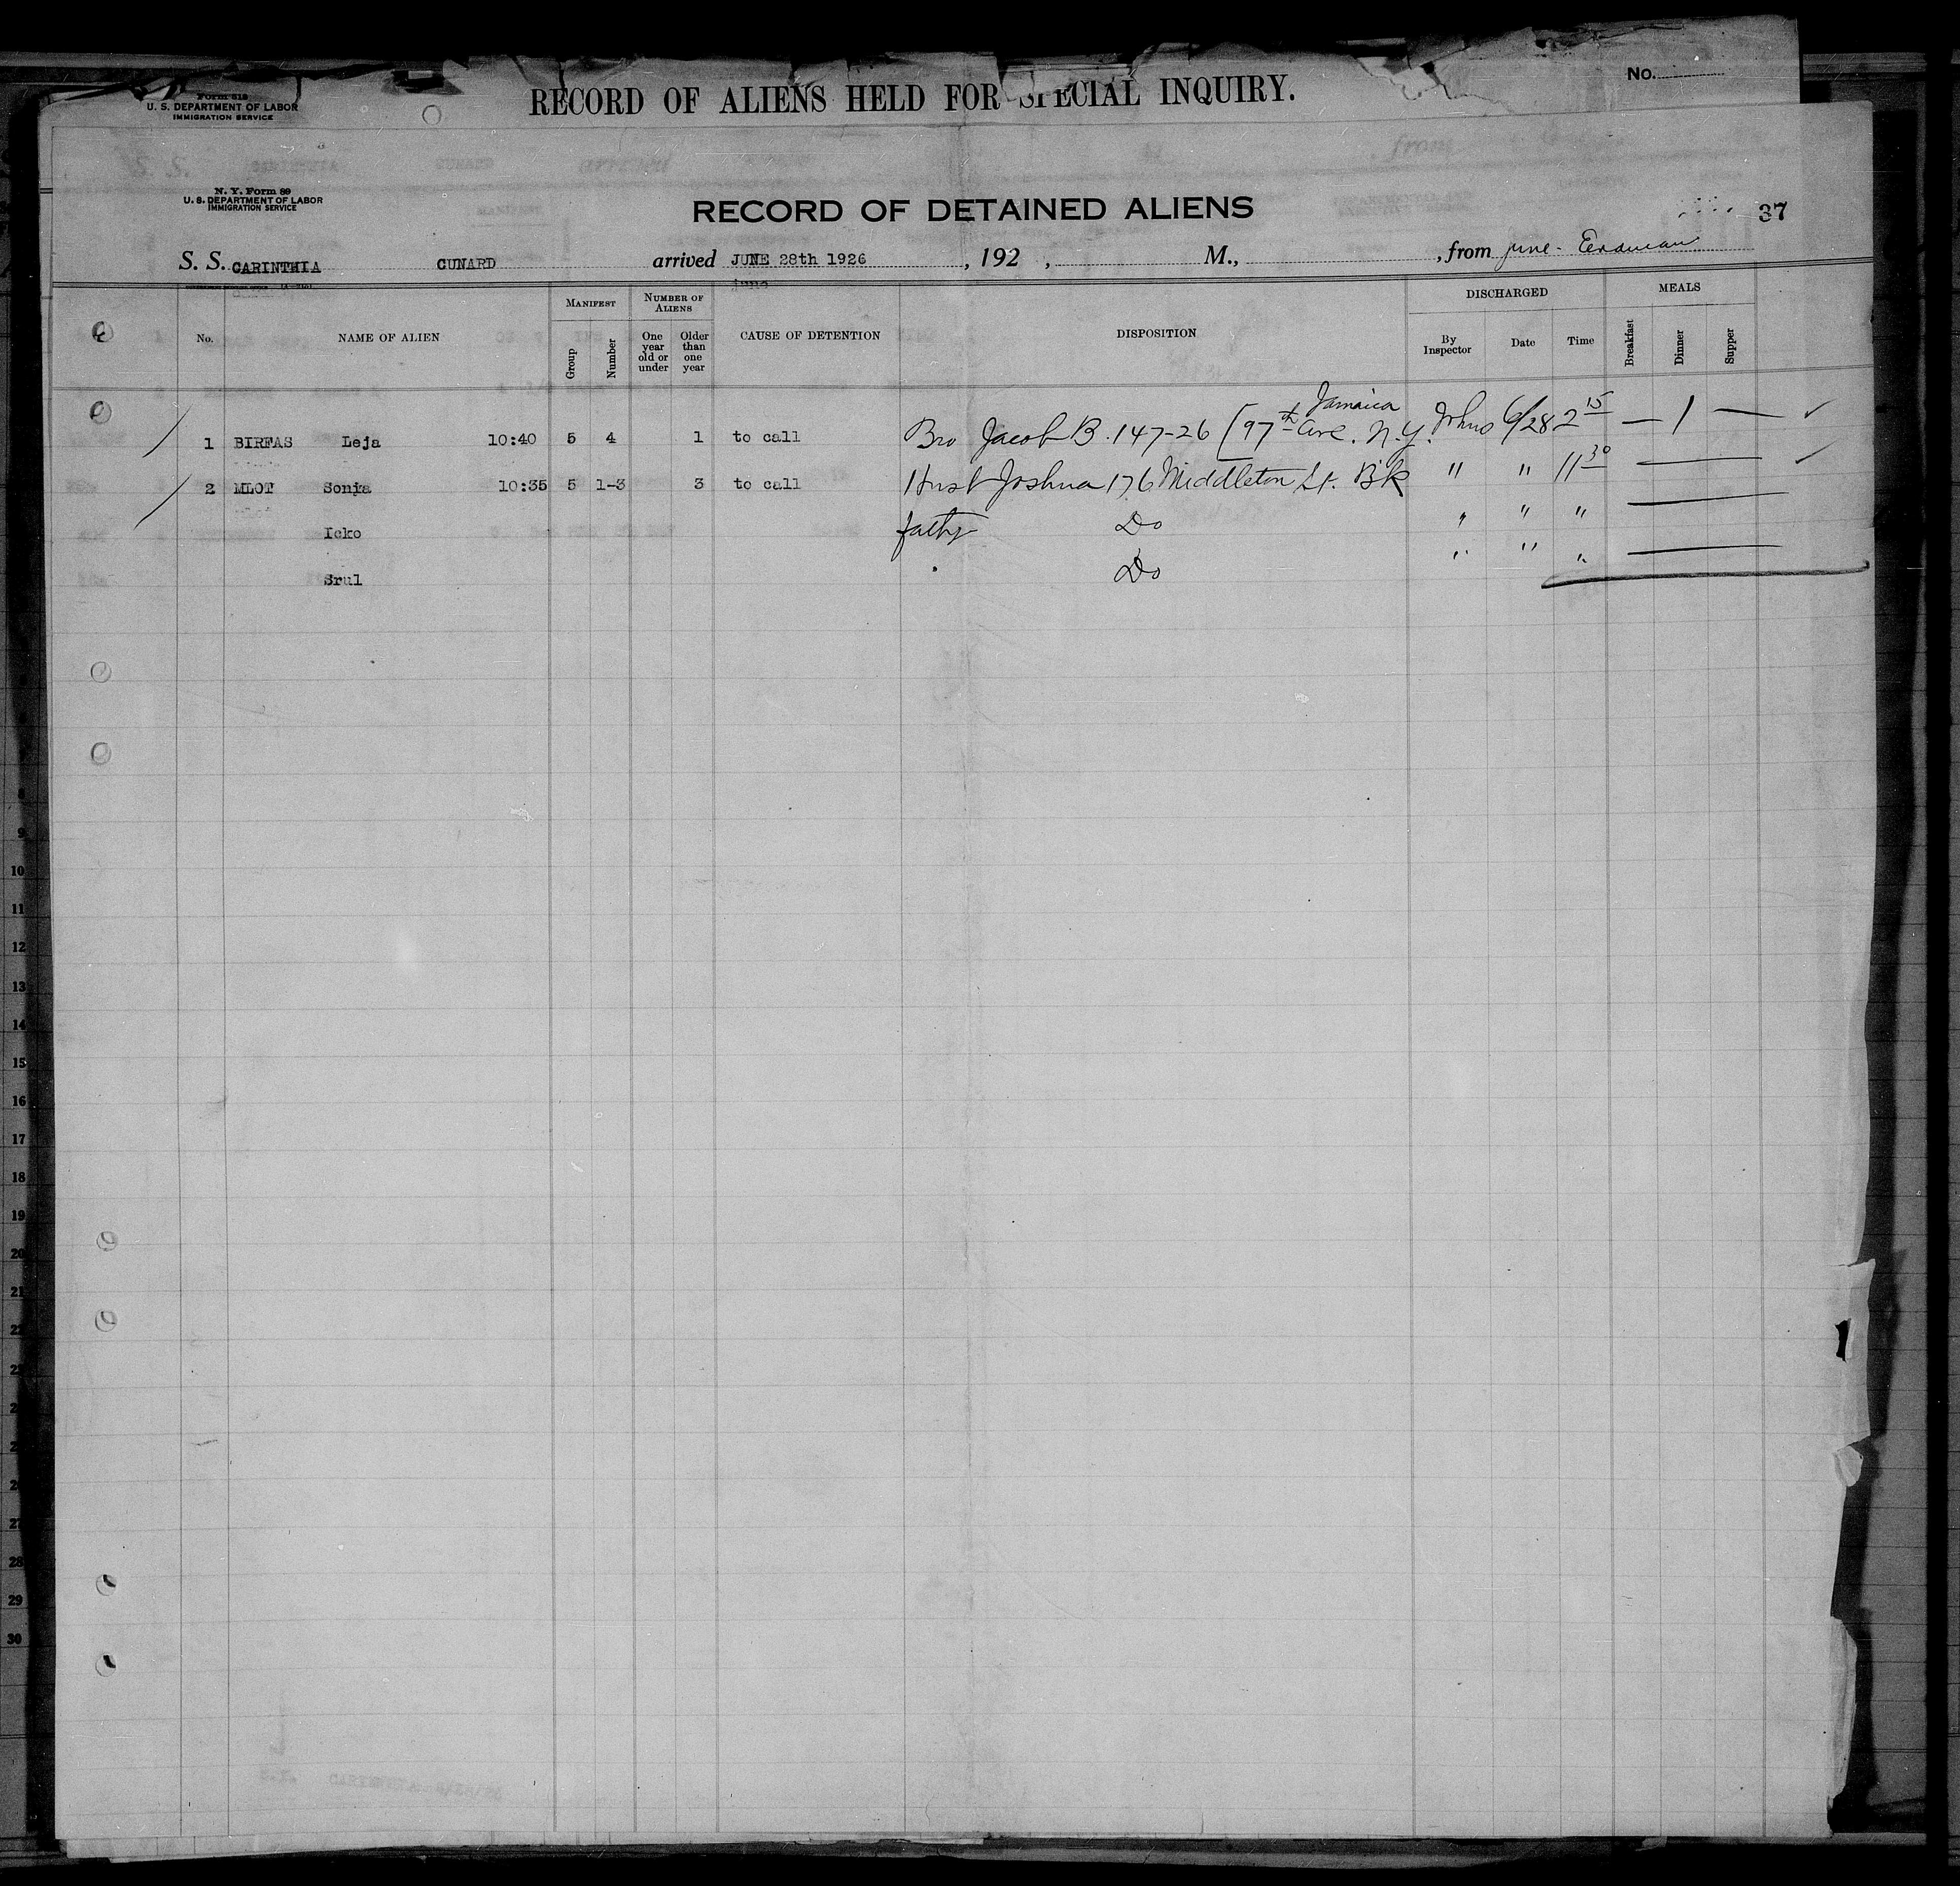 Form 518
U. S. DEPARTMENT OF LABOR
IMMIGRATION SERVICE
RECORD OF ALIENS HELD FOR SPECIAL INQUIRY.
No.
N. Y. Form 89
U. S. DEPARTMENT OF LABOR
IMMIGRATION SERVICE
RECORD OF DETAINED ALIENS
37
S. S. CARINTHIA CUNARD arrived JUNE 28th 1926, 192 , M., , from
No. NAME OF ALIEN MANIFEST Group Number NUMBER OF ALIENS One year old or under Older than one year CAUSE OF DETENTION DISPOSITION DISCHARGED By Inspector Date Time MEALS Breakfast Dinner Supper
Jamaica
1 BIRFAS Leja 10:40 5 4 1 to call Bro Jacob B. 147-26 [97th Ave. N.Y. Johns 6/28 2 15 — 1 — ✓
2 MLOT Sonja 10:35 5 1-3 3 to call Husb Joshua 176 Middleton St. Bk " " 11 30 ✓
Icko father Do " " "
Srul " Do " " "
8
9
10
11
12
13
14
15
16
17
18
19
20
21
22
28
29
30